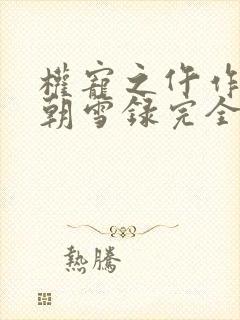 權寵之仵作
朝雪録完全
熱騰